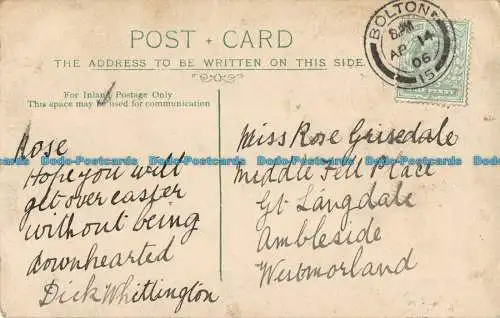 POST CARD
THE ADDRESS TO BE WRITTEN ON THIS SIDE.
For Inland Postage Only
This space may be used for communication
BOLTON
8 PM
AP 14
06
15
Rose
Hope you will
get over easter
without being
downhearted
Dick Whittington
Miss Rose Grisedale
Middle Fell Place
Gt Langdale
Ambleside
Westmorland
Dodo-Postcards Dodo-Postcards Dodo-Postcards Dodo-Postcards Dodo-Postcards